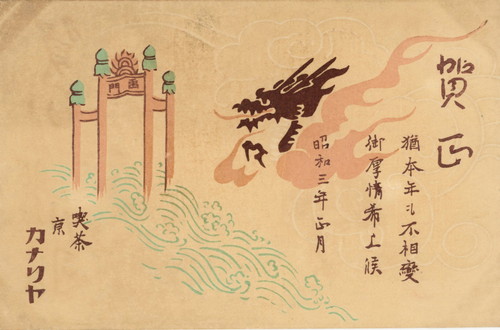 賀正
猶本年も不相變
御厚情希上候
昭和三年正月
禹門
喫茶
京
カナリヤ